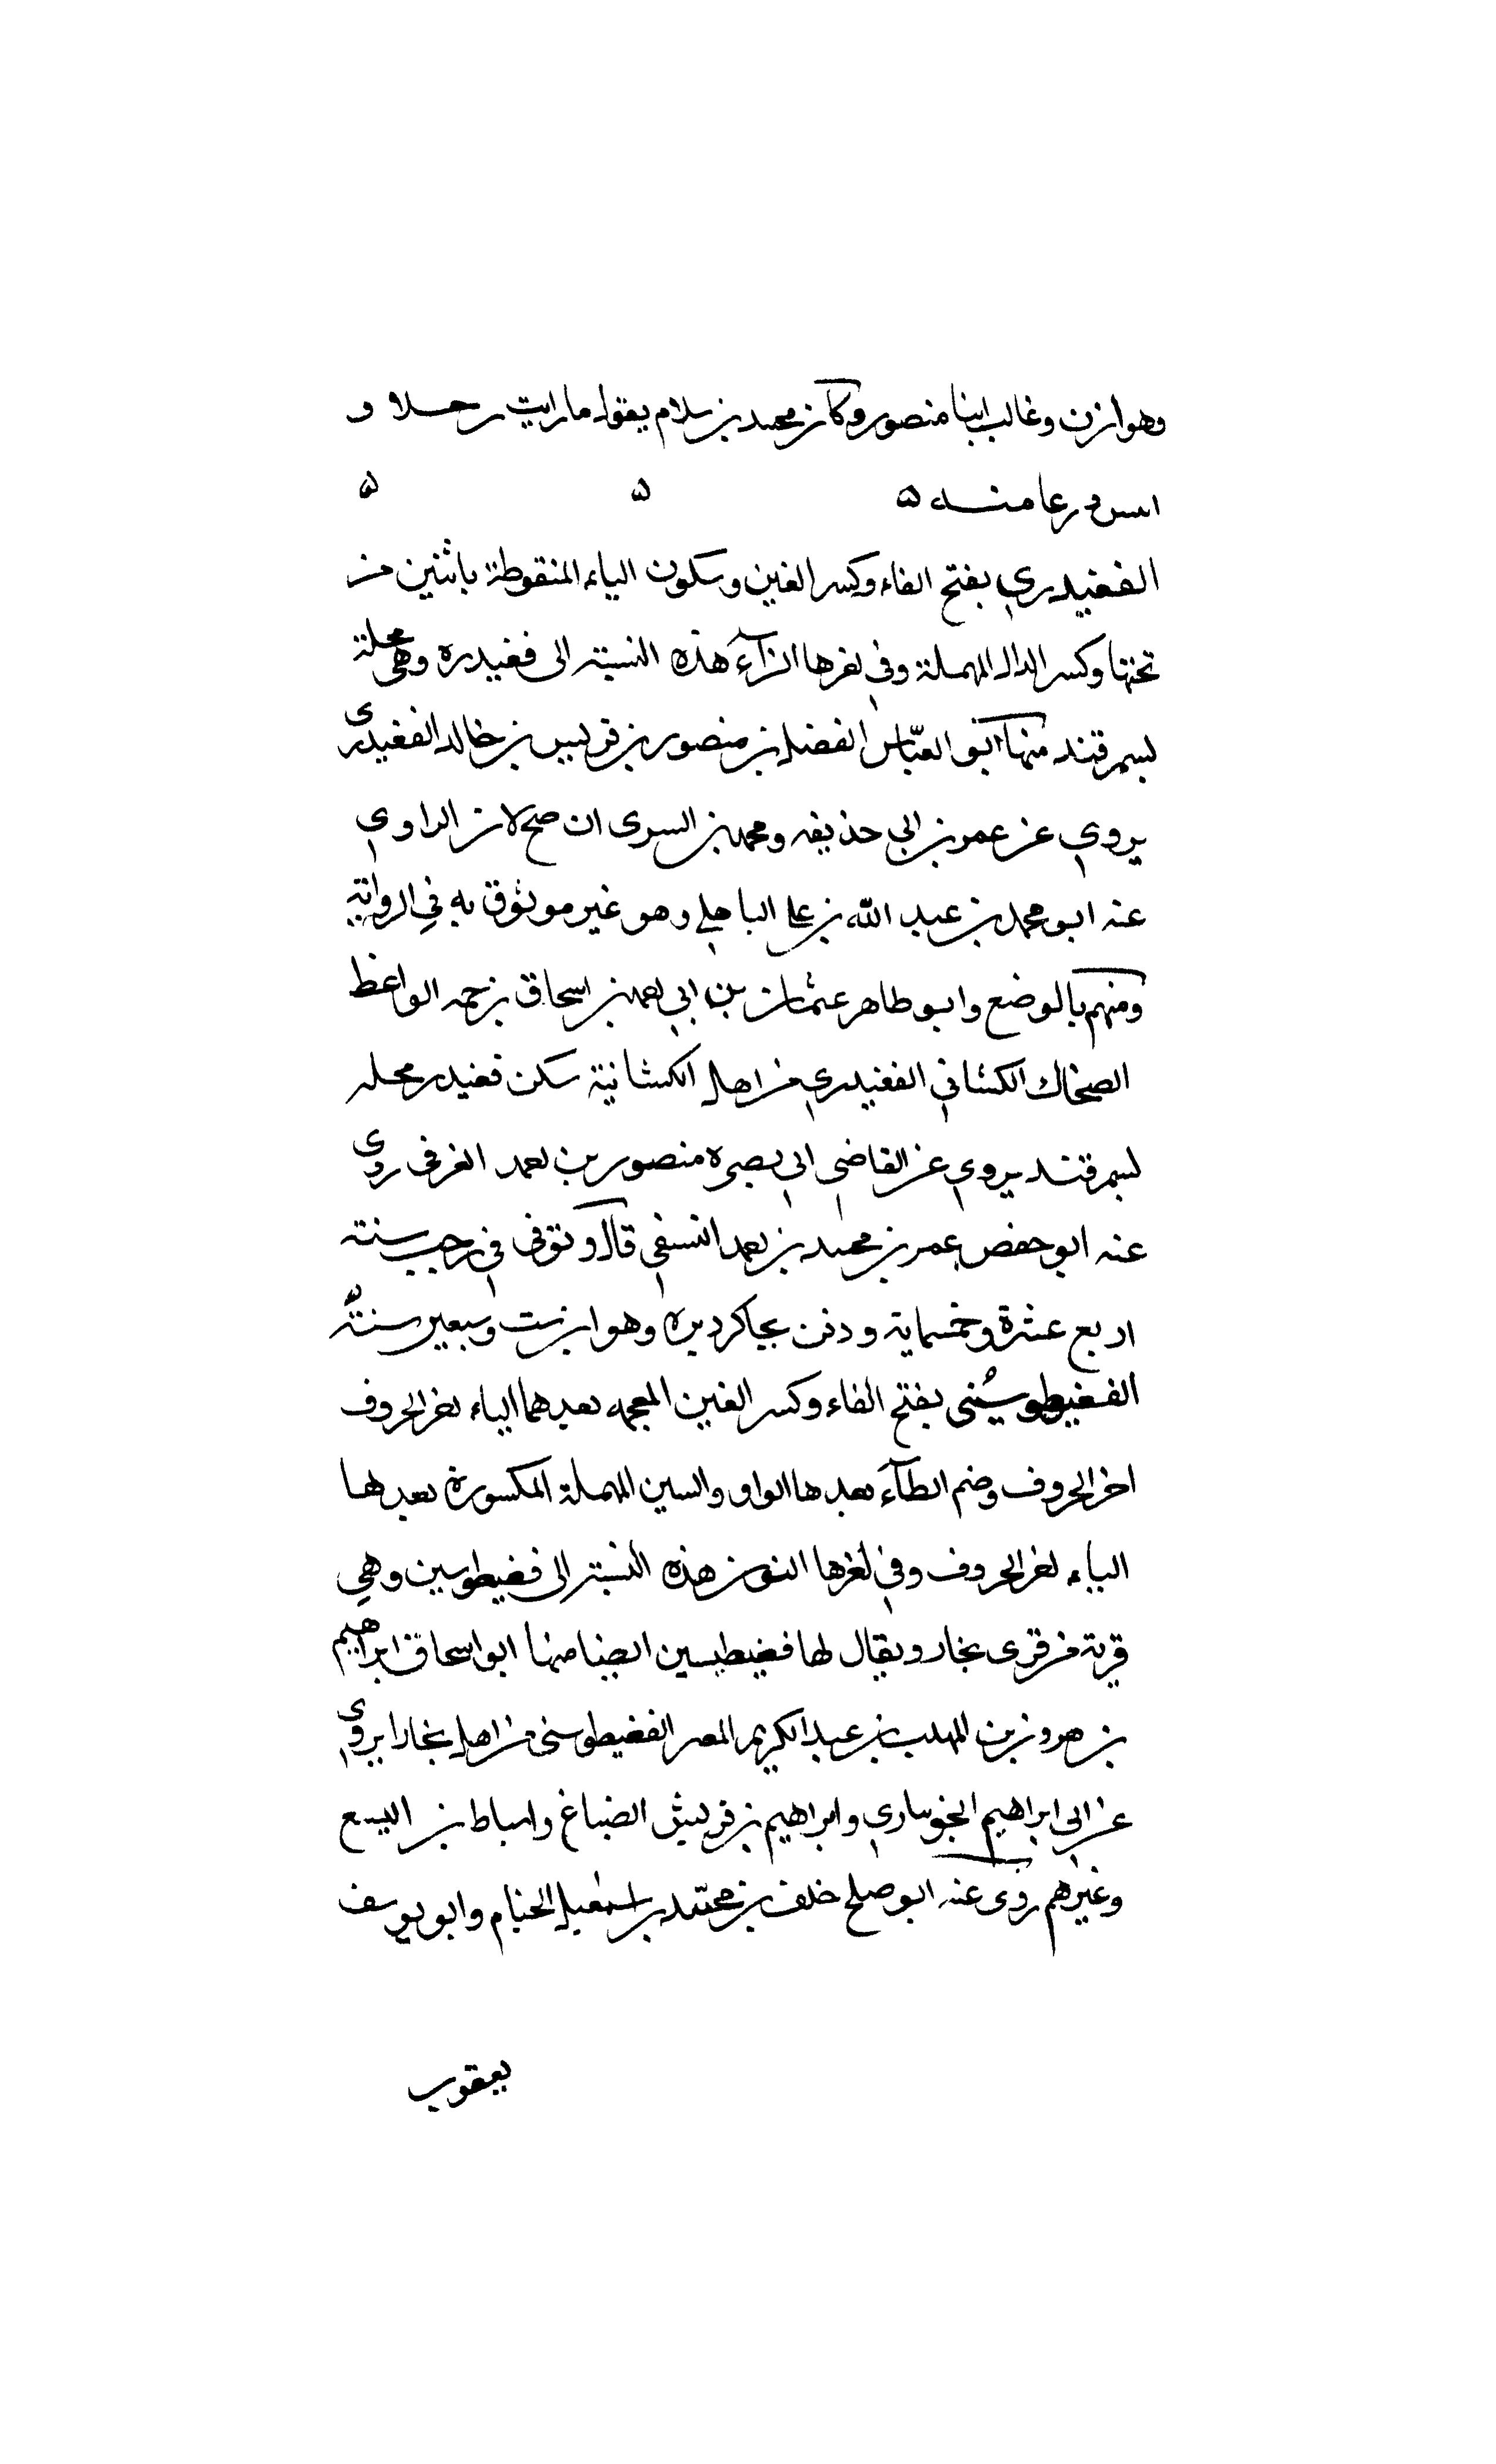 وهوازن وغالب ابنا منصور وكان محمد بن سلام يقول ما رايت رجلا و
اسرد رعا منه ه ه ه
الفغيدري بفتح الفاء وكسر الغين وسكون الياء المنقوطة باثنين من
تحتها وكسر الدال المهملة وفي اخرها الرآء هذه النسبة الى فغيدره وهي محلة
بسمرقند منها ابو العبّاس الفضل بن منصور بن قريس بن خالد الفغيدري
يروي عن عمر بن ابي حذيفه ومحمد بن السرى ان صح لان الراوي
عنه ابو محمد بن عبد الله بن علي الباهلي وهو غير موثوق به في الرواية
ومنهم بالوضع وابو طاهر عثمان بن ابي احمد بن اسحاق بن حمد الواعظ
الضحاك الكشاني الفغيدري من اهل الكشانية سكن فغيدر محله
بسمرقند يروي عن القاضي ابي بصره منصور بن احمد الغزفي روى
عنه ابو حفص عمر بن محمد بن احمد النسفي قال وتوفي في رجب سنة
اربع عشرة وخمسماية ودفن بجاكرديزه وهو ابن ست وسبعين سنة ه
الفغيطوسيُني بفتح الفاء وكسر الغين المعجمه بعدهما الياء اخر الحروف
اخر الحروف وضم الطآء بعدها الواو والسين المهملة المكسورة بعدها
الياء اخر الحروف وفي اخرها النون هذه النسبة الى فغيطوسين وهي
قرية من قرى بخار ويقال لها فغيطيسين ايضا منها ابو اسحاق ابراهيم
بن هرون بن المهلب بن عبد الكريم المصر الفغيطوسني من اهل بخارا يروي
عن ابي ابراهيم الجوساري وابراهيم بن قريش الضباغ واسباط بن اليسع
وغيرهم روى عنه ابو صلح خلف بن محمّد بن اسمعيل الخيام وابو يوسف
يعقوب